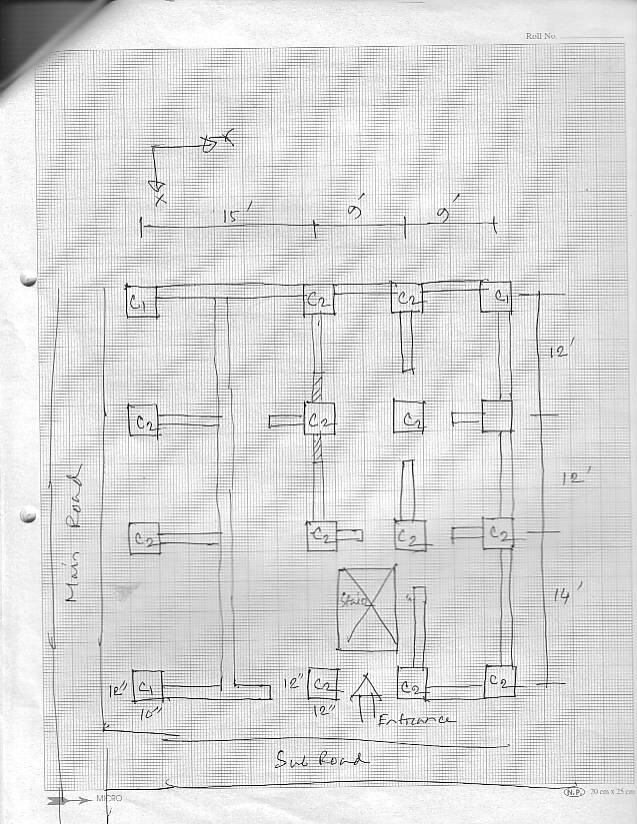 Roll No.
X
X
15' 9' 9'
C1 C2 C2 C1
12'
C2 C2 C2
12'
Main Road
C2 C2 C2 C2
Stair
14'
12" C1 12" C2 C2 C2
10" 12"
Entrance
Sub Road
MICRO
N.P. 20 cm x 25 cm